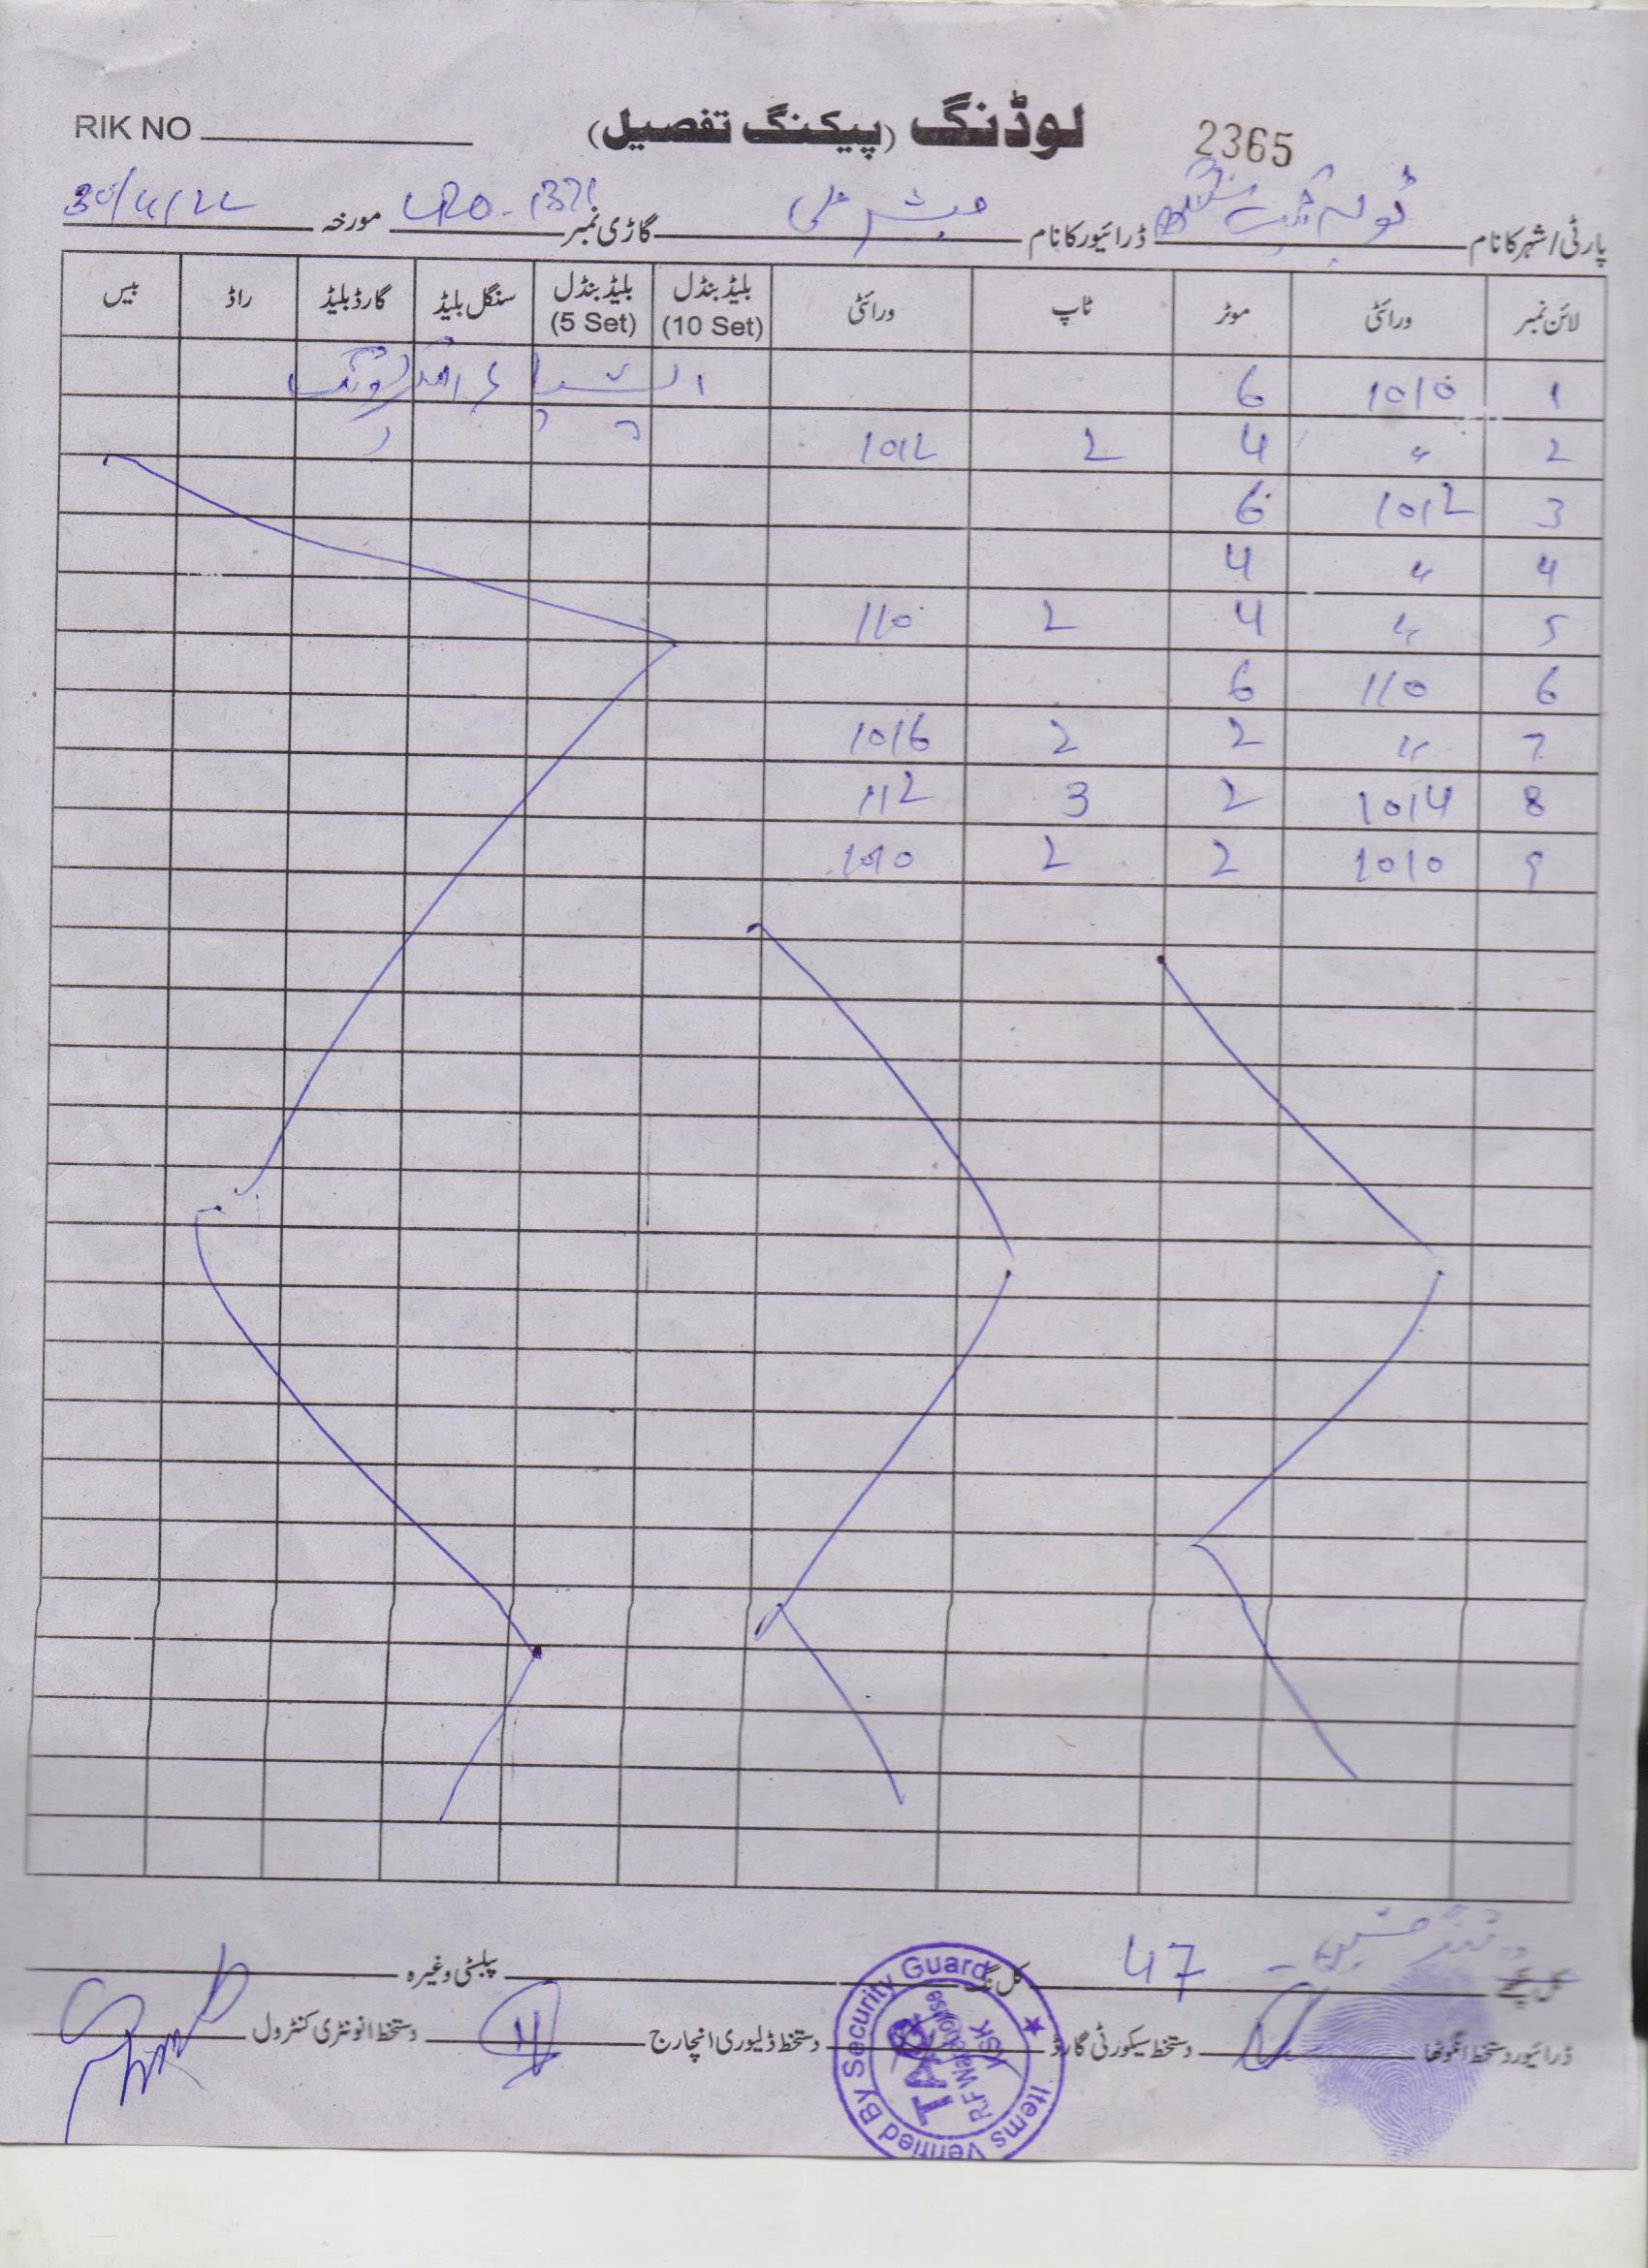 RIK NO
لوڈنگ (پیکنگ تفصیل)
2365
پارٹی/شہر کا نام ٹوبہ ٹیک سنگھ ڈرائیور کا نام مبشر علی گاڑی نمبر 1371 مورخہ 30/4/22
لائن نمبر ورائٹی موٹر ٹاپ ورائٹی بلیڈ بنڈل (10 Set) بلیڈ بنڈل (5 Set) سنگل بلیڈ گارڈ بلیڈ راڈ بیس
1 1010 6
2 〃 4 2 1012
3 1012 6
4 〃 4
5 〃 4 2 110
6 110 6
7 〃 2 2 1016
8 1014 2 3 112
9 1010 2 2 1010
کل پنکھے کل نگ 47 پبلسٹی وغیرہ
ڈرائیور دستخط انگوٹھا دستخط سیکورٹی گارڈ دستخط ڈلیوری انچارج دستخط انونٹری کنٹرول
Items Verified By Security Guard
R.F Warehouse